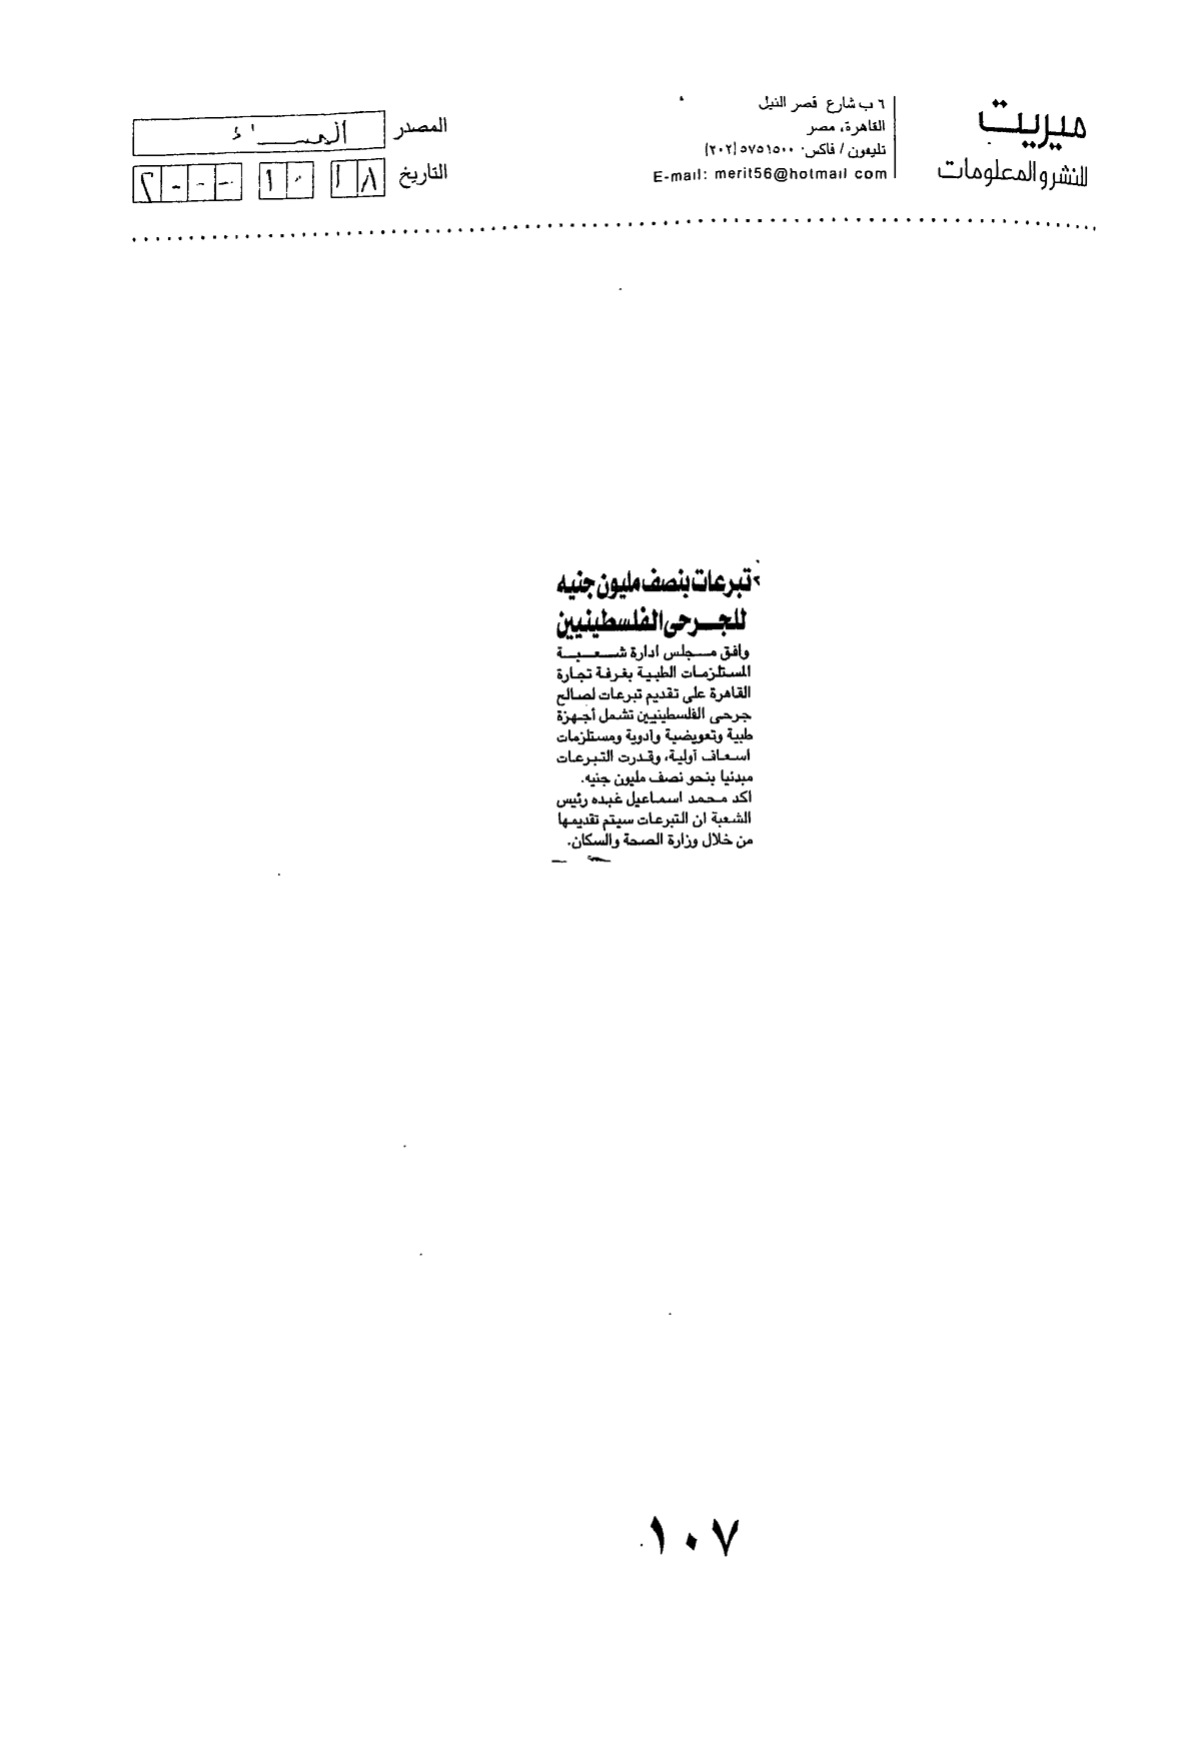 ميريت
للنشر والمعلومات
٦ ب شارع قصر النيل
القاهرة، مصر
تليفون / فاكس: ٥٧٥١٥٠٠ (٢٠٢)
E-mail: merit56@hotmail com
المصدر المساء
التاريخ ١٨ ١٠ ٢٠٠٠
تبرعات بنصف مليون جنيه
للجرحى الفلسطينيين
وافق مجلس ادارة شعبة
المستلزمات الطبية بغرفة تجارة
القاهرة على تقديم تبرعات لصالح
جرحى الفلسطينيين تشمل أجهزة
طبية وتعويضية وأدوية ومستلزمات
اسعاف أولية، وقدرت التبرعات
مبدئيا بنحو نصف مليون جنيه.
اكد محمد اسماعيل عبده رئيس
الشعبة ان التبرعات سيتم تقديمها
من خلال وزارة الصحة والسكان.
١٠٧